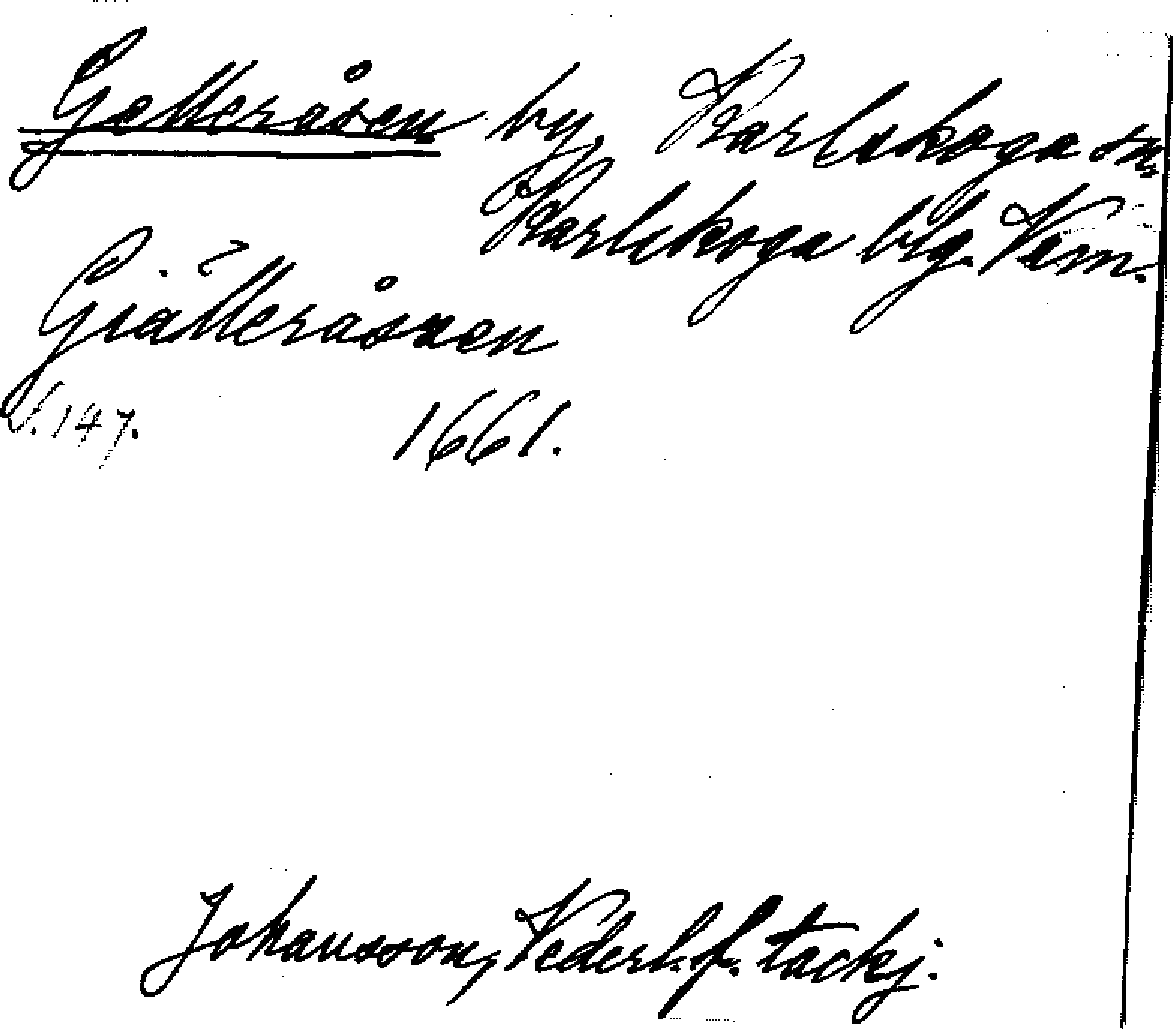 Gelleråsen by, Karlskoga sn,
Karlskoga bg. Verm.
Giälleråsen
S. 147. 1661.
Johansson, Vederl. f. tackj.